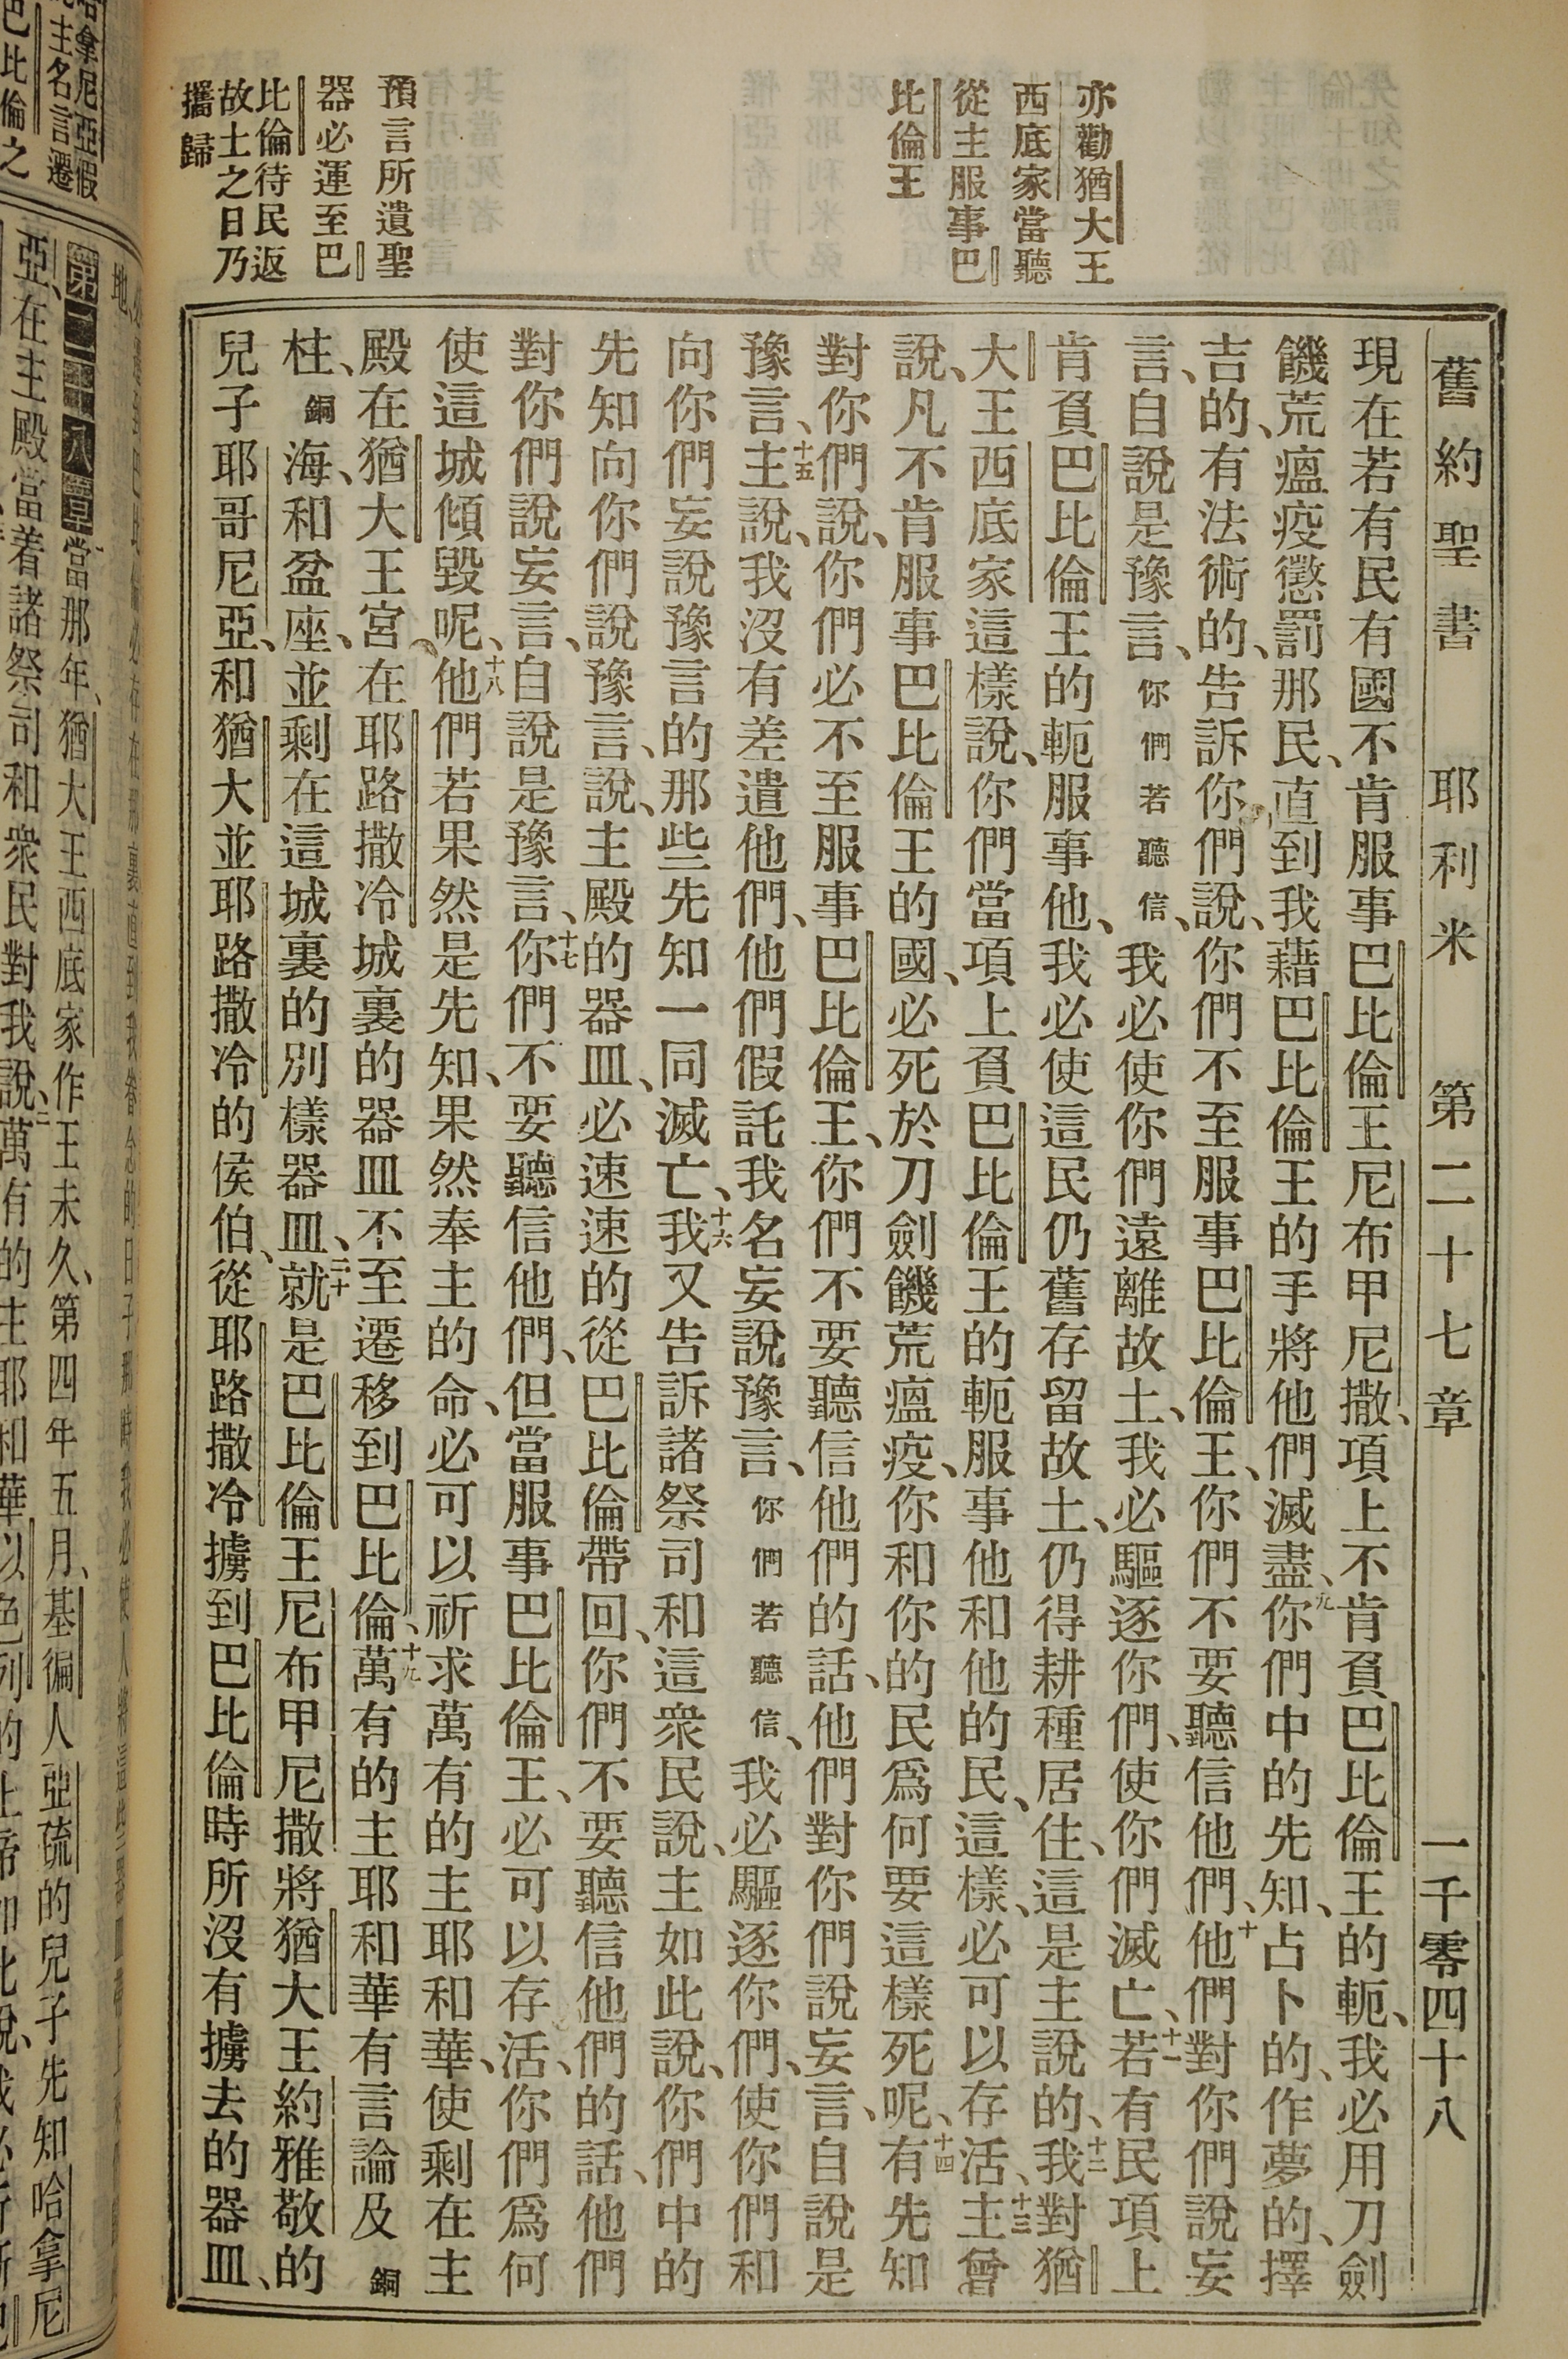 舊約聖書 耶利米 第二十七章 一千零四十八
亦勸猶大王
西底家當聽
從主服事巴
比倫王
預言所遺聖
器必運至巴
比倫待民返
故土之日乃
攜歸
現在若有民有國不肯服事巴比倫王尼布甲尼撒、項上不肯負巴比倫王的軛、我必用刀劍
饑荒瘟疫懲罰那民、直到我藉巴比倫王的手將他們滅盡、九你們中的先知、占卜的、作夢的、擇
吉的、有法術的、告訴你們說、你們不至服事巴比倫王、你們不要聽信他們、十他們對你們說妄
言、自說是豫言、你們若聽信、我必使你們遠離故土、我必驅逐你們、使你們滅亡、十一若有民項上
肯負巴比倫王的軛服事他、我必使這民仍舊存留故土、仍得耕種居住、這是主說的、十二我對猶
大王西底家這樣說、你們當項上負巴比倫王的軛服事他和他的民、這樣、必可以存活、十三主曾
說、凡不肯服事巴比倫王的國、必死於刀劍饑荒瘟疫、你和你的民爲何要這樣死呢、十四有先知
對你們說、你們必不至服事巴比倫王、你們不要聽信他們的話、他們對你們說妄言、自說是
豫言、十五主說、我沒有差遣他們、他們假託我名妄說豫言、你們若聽信、我必驅逐你們、使你們和
向你們妄說豫言的那些先知一同滅亡、十六我又告訴諸祭司和這衆民說、主如此說、你們中的
先知向你們說豫言、說、主殿的器皿、必速速的從巴比倫帶回、你們不要聽信他們的話、他們
對你們說妄言、自說是豫言、十七你們不要聽信他們、但當服事巴比倫王、必可以存活、你們爲何
使這城傾毀呢、十八他們若果然是先知、果然奉主的命、必可以祈求萬有的主耶和華、使剩在主
殿在猶大王宮、在耶路撒冷城裏的器皿不至遷移到巴比倫、十九萬有的主耶和華有言論及銅
柱、銅海、和盆座、並剩在這城裏的別樣器皿、二十就是巴比倫王尼布甲尼撒將猶大王約雅敬的
兒子耶哥尼亞、和猶大並耶路撒冷的侯伯、從耶路撒冷擄到巴比倫時所沒有擄去的器皿、
第二十八章當那年、猶大王西底家作王未久、第四年五月、基徧人亞硫的兒子先知哈拿尼
亞、在主殿當着諸祭司和衆民對我說、二萬有的主耶和華以色列的上帝如此說、